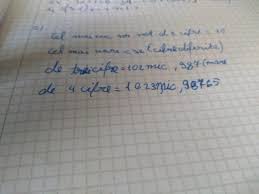 2)
cel mai mic nr nat de 2 cifre = 10
cel mai mare = 98 (cifre diferite)
de trei cifre = 102 mic, 987 (mare
de 4 cifre = 1023 mic, 98765